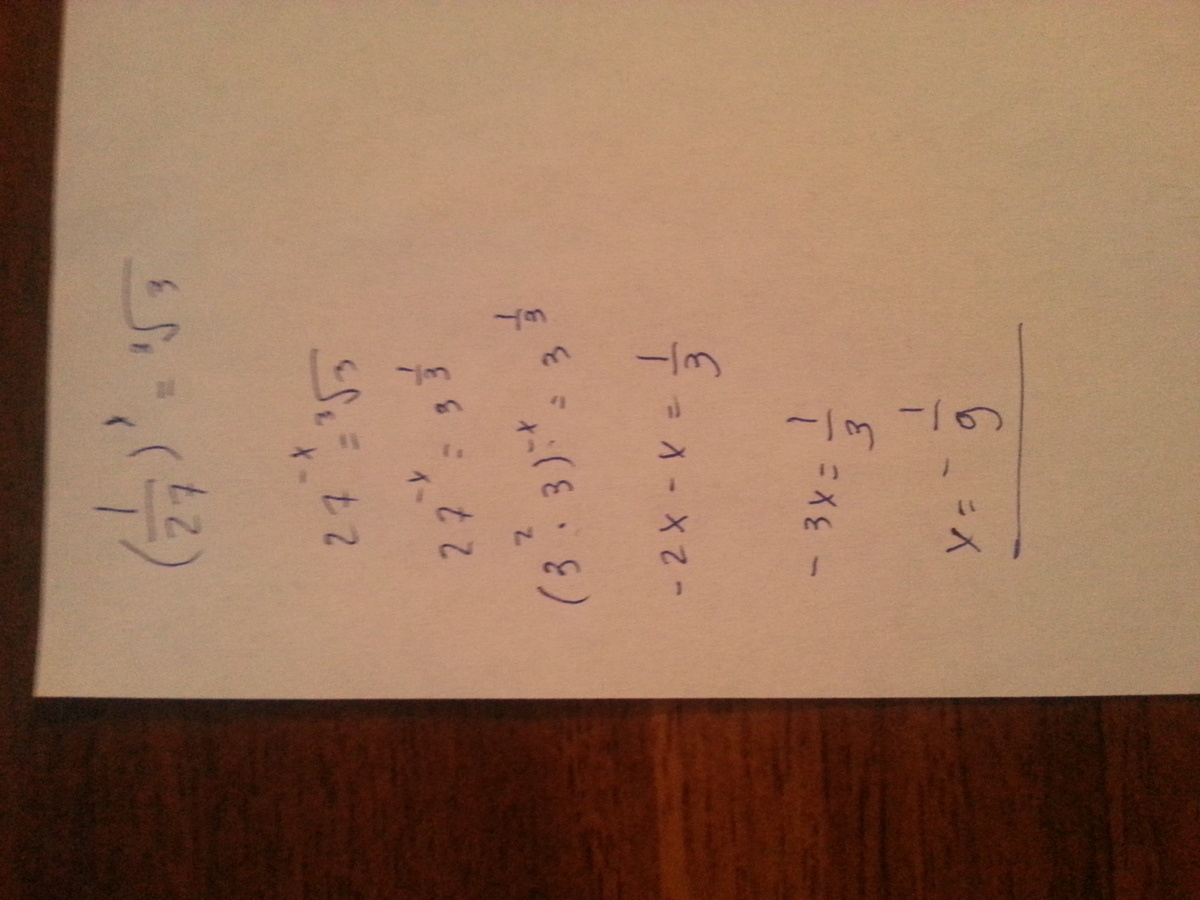 (1/27)^x = ∛3
27^-x = ∛3
27^-x = 3^1/3
(3^2 · 3)^-x = 3^1/3
-2x - x = 1/3
-3x = 1/3
x = - 1/9